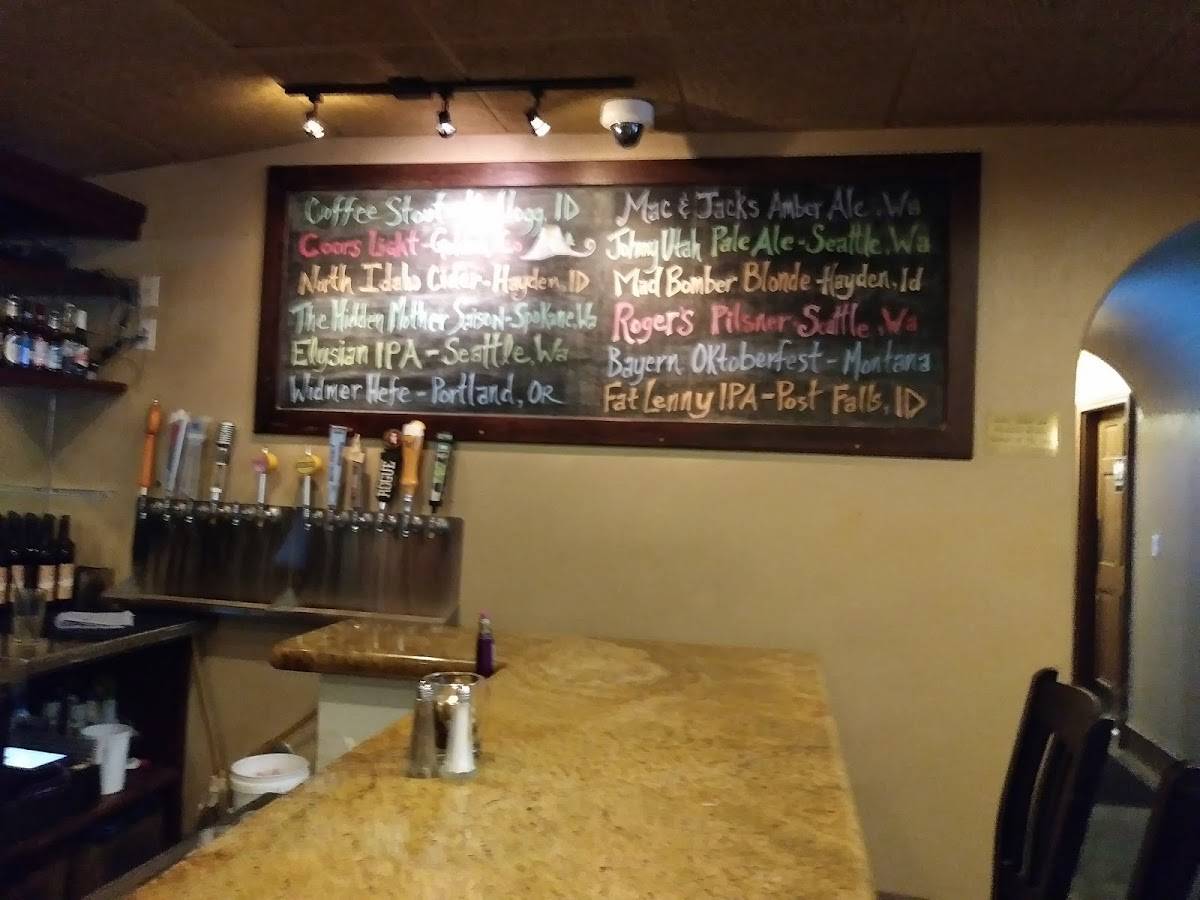 Coffee Stout - Kellogg, ID
Coors Light - Golden, Co
North Idaho Cider - Hayden, ID
The Hidden Mother Saison - Spokane, Wa
Elysian IPA - Seattle, Wa
Widmer Hefe - Portland, OR
Mac & Jacks Amber Ale, Wa
Johny Utah Pale Ale - Seattle, Wa
Mad Bomber Blonde - Hayden, Id
Roger's Pilsner - Seattle, Wa
Bayern Oktoberfest - Montana
Fat Lenny IPA - Post Falls, ID
ROGUE